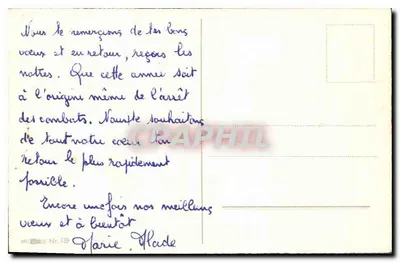 Nous te remerçions de tes bons
vœux et en retour, reçois les
nôtres. Que cette année soit
à l'origine même de l'arrêt
des combats. Nous te souhaitons
de tout notre cœur ton
retour le plus rapidement
possible.
Encore une fois nos meilleurs
vœux et à bientôt
Marie.
CARTE-POSTALE-PHOTO